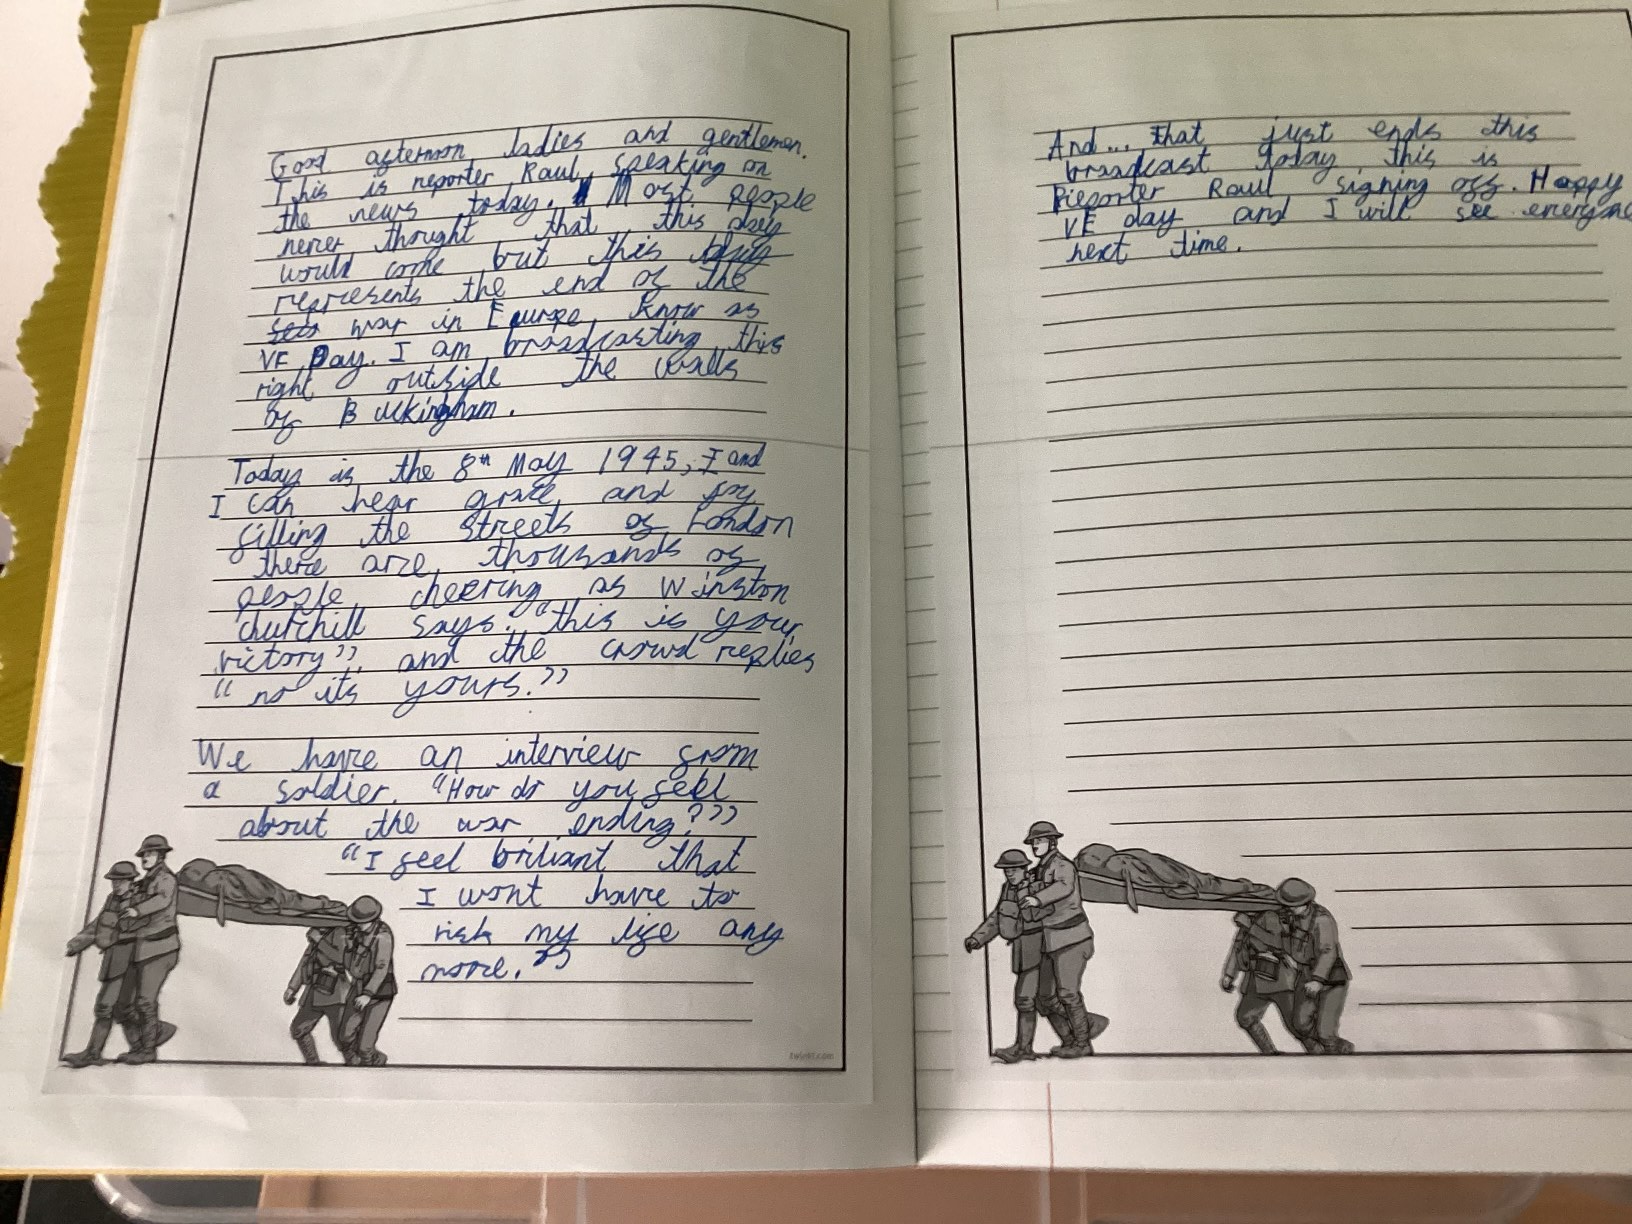 Good afternoon, ladies and gentlemen.
This is reporter Raul, speaking on
the news today. Most people
never thought that this day
would come but this day
represents the end of the
war in Europe, know as
VE Day. I am broadcasting this
right outside the walls
of Buckingham.
Today is the 8th May 1945, I and
I can hear grate and joy
filling the streets of London
there are thousands of
people cheering as Winston
churchill says: "this is your
victory", and the crowd replies
"no its yours."
We have an interview from
a soldier. "How do you feel
about the war ending?"
"I feel briliant that
I wont have to
risk my life any
more."
twinkl.com
And... that just ends this
broadcast today this is
Reporter Raul signing off. Happy
VE day and I will see everyone
next time.